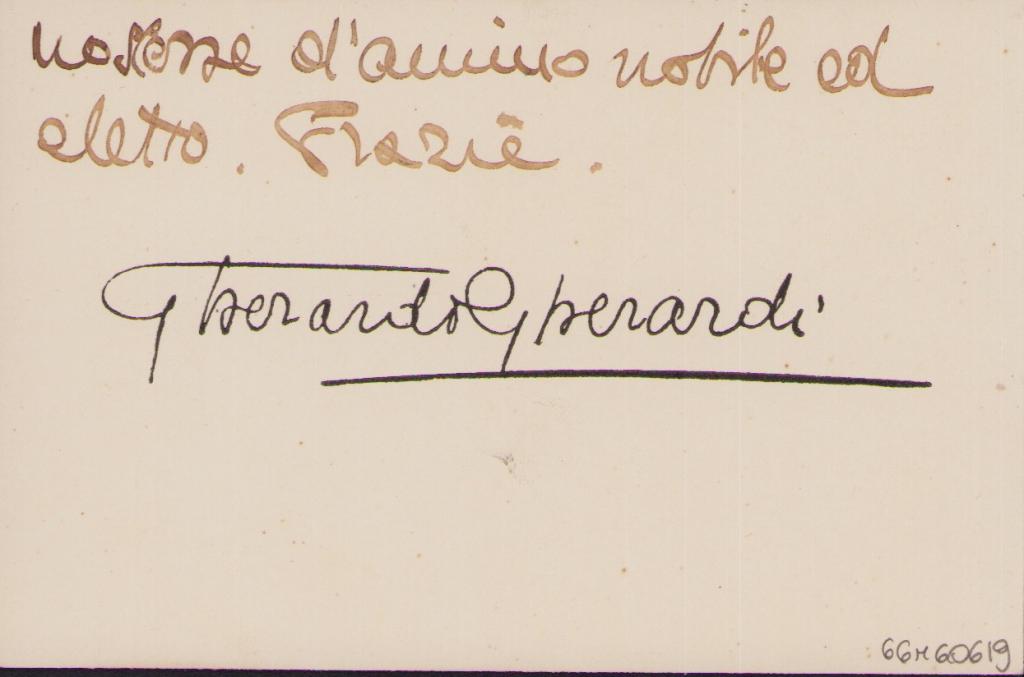 d'animo nobile ed
eletto. Grazie.
Gherardo Gherardi
66M60619